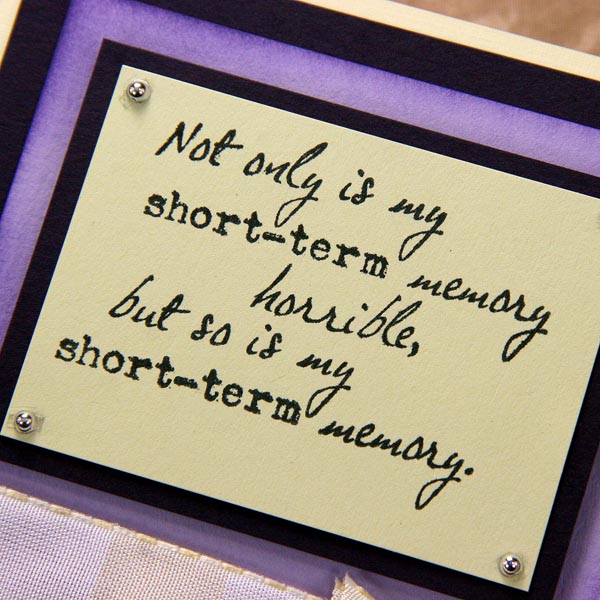 Not only is my
short-term memory
horrible,
but so is my
short-term memory.